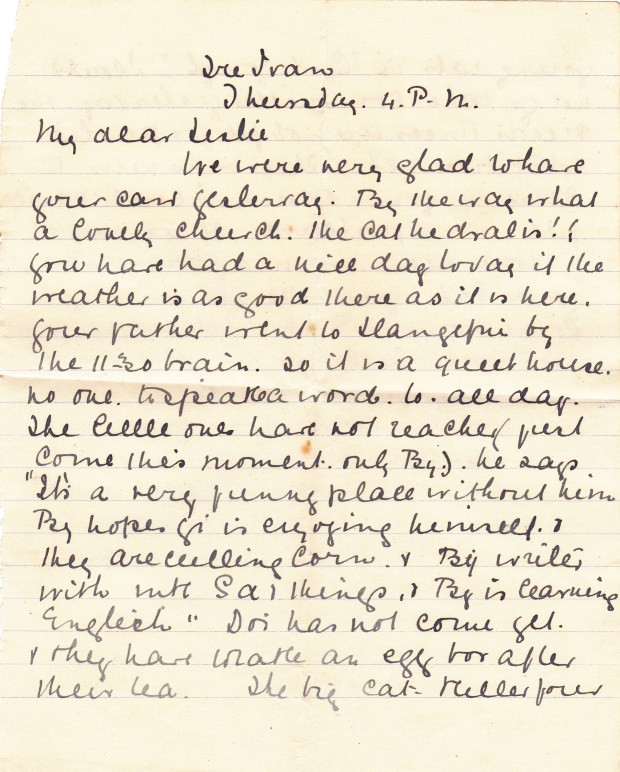 Tre Ivan
Thursday. 4. P. M.
My dear Leslie
We were very glad to have
your card yesterday. By the way what
a lovely church. the Cathedral is!!
you have had a nice day to day if the
weather is as good there as it is here.
your father went to Llangefni by
the 11-30 train. so it is a quiet house.
no one. to speak a word. to. all day.
The little ones have not reached just
come this moment. only By.). he says
"It's a very funny place without him
By hopes gi is enjoying himself. &
they are cutting Corn. & By writes
with things, & By is learning
English" Doi has not come yet.
& they have to take an egg for after
their tea. The big Cat four